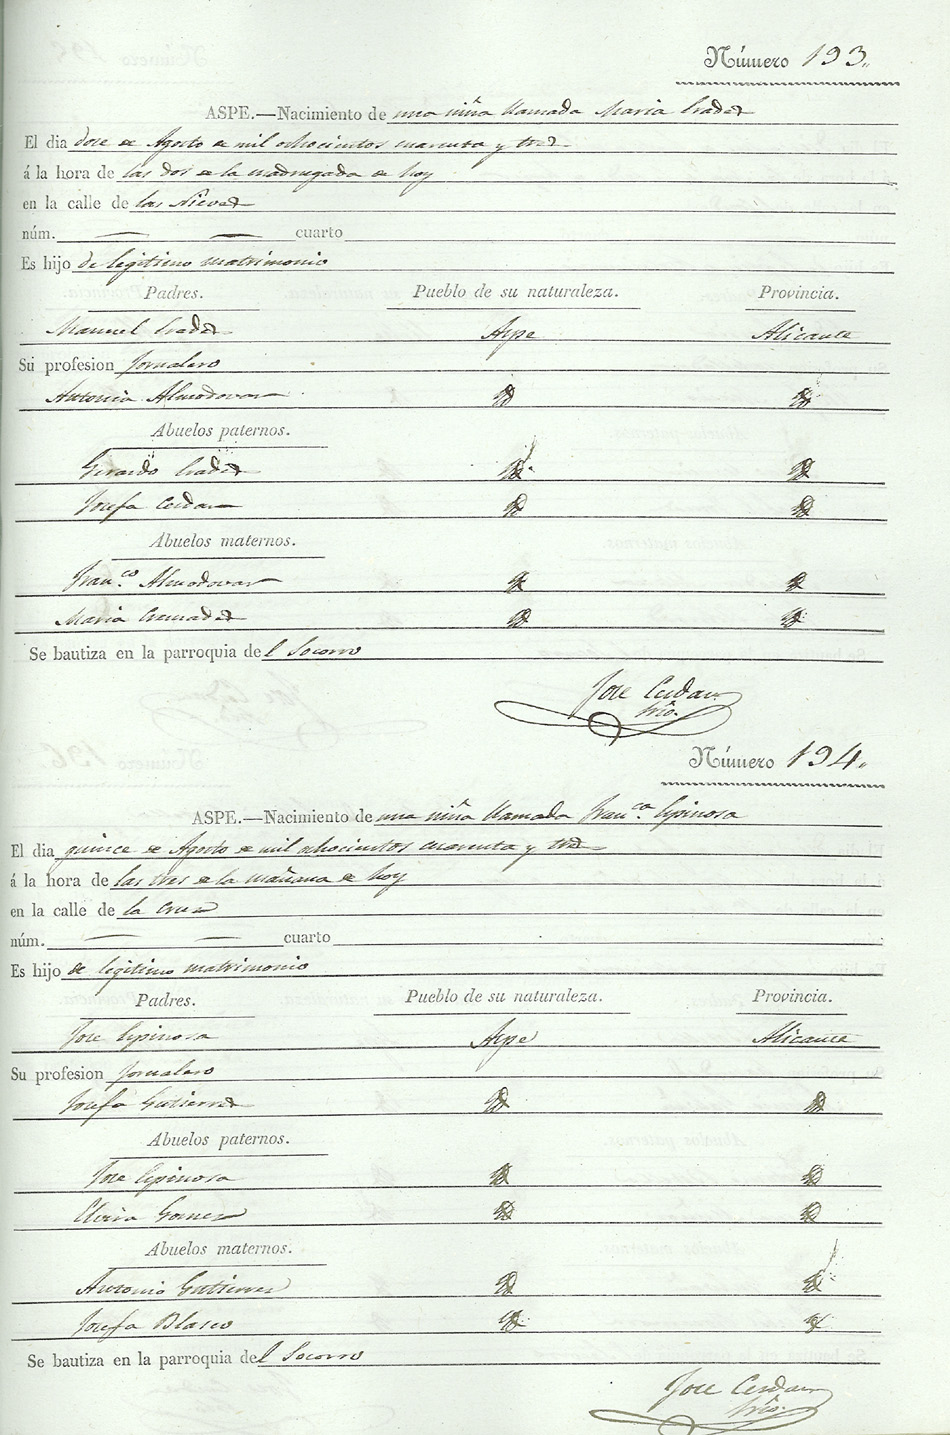 Número 193.
ASPE.—Nacimiento de una niña llamada Maria Prades
El dia doce de Agosto de mil ochocientos cuarenta y tres
á la hora de las dos de la madrugada de hoy
en la calle de las Nieves
núm. — — cuarto
Es hijo de legitimo matrimonio
Padres. Pueblo de su naturaleza. Provincia.
Manuel Prades Aspe Alicante
Su profesion Jornalero
Antonia Almodovar
Abuelos paternos.
Gerardo Prades
Josefa Cerdan
Abuelos maternos.
Fran.co Almodovar
Maria Cremades
Se bautiza en la parroquia del Socorro
Jose Cerdan
Srio.
Número 194.
ASPE.—Nacimiento de una niña llamada Fran.ca Espinosa
El dia quince de Agosto de mil ochocientos cuarenta y tres
á la hora de las tres de la mañana de hoy
en la calle de la Cruz
núm. — — cuarto
Es hijo de legitimo matrimonio
Padres. Pueblo de su naturaleza. Provincia.
Jose Espinosa Aspe Alicante
Su profesion Jornalero
Josefa Gutierres
Abuelos paternos.
Jose Espinosa
Elvira Gomes
Abuelos maternos.
Antonio Gutierres
Josefa Blasco
Se bautiza en la parroquia del Socorro
Jose Cerdan
Srio.